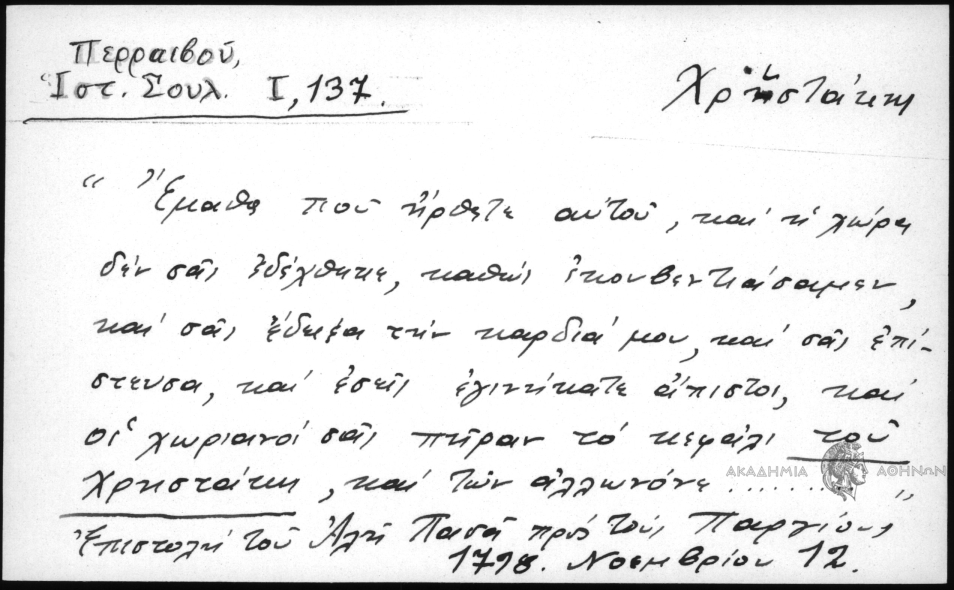 Περραιβοῦ,
Ἱστ. Σουλ. Ι, 137.
Χρηστάκη
“ Ἔμαθα ποῦ ἤρθετε αὐτοῦ, καί ἡ χώρα
δέν σᾶς ἐδέχθηκε, καθώς ἐκουβεντιάσαμεν,
καί σᾶς ἔδειξα τήν καρδιά μου, καί σᾶς ἐπί-
στευσα, καί ἐσεῖς ἐγινήκατε ἄπιστοι, καί
οἱ χωριανοί σας πῆραν τό κεφάλι τοῦ
Χρηστάκη, καί τῶν ἀλλωνόνε ......... ”
ΑΚΑΔΗΜΙΑ ΑΘΗΝΩΝ
Ἐπιστολή τοῦ Ἀλῆ Πασᾶ πρός τούς Παργίους
1798. Νοεμβρίου 12.